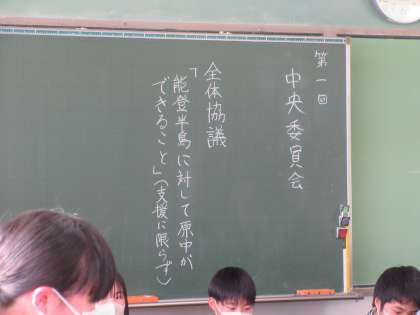 第一回
中央委員会
全体協議
「能登半島に対して原中が
できること」(支援に限らず)